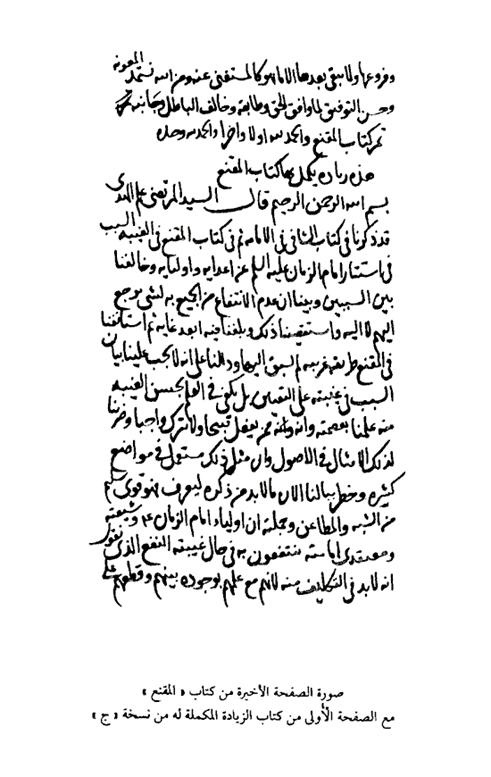 وفروعها ولا يبقى بعدها الا ما هو كالمستغنى عنه ومن الله نستمد المعونة
وحسن التوفيق لما وافق الحق وطابقه وخالف الباطل وجانبه
تم كتاب المقنع والحمد لله اولا واخرا والحمد لله وحده
هذه زيادة يكمل بها كتاب المقنع
بسم الله الرحمن الرحيم قال السيد المرتضى علم الهدى
قد ذكرنا في كتاب الشافي في الامامة ثم في كتاب المقنع في الغيبة السبب
في استتار امام الزمان عليه السلم عن اعدايه واوليايه وخالفنا
بين السببين وبينا ان عدم الانتفاع من الجميع به لشي يرجع
اليهم لا اليه واستقصينا ذلك وبلغنا فيه ابعد غاية ثم استانفنا
في المقنع طريقة غريبة لم نسبق اليها ودللنا على انه لا يجب علينا بيان
السبب في غيبته على التعيين بل يكفي في العلم بحسن الغيبة
منه علمنا بعصمته وانه ممن لا يفعل قبيحا ولا يترك واجبا وضربنا
لذلك الامثال في الاصول وان مثل ذلك مستعمل في مواضع
كثيرة وخطر ببالنا الان ما لابد من ذكره ليعرف فهو قوي
من الشبه والمطاعن وجملته ان اولياء امام الزمان ع وشيعته
ومعتقدي امامته ينتفعون به في حال غيبته النفع الذي نقول
انه لابد في التكليف منه لانهم مع علمهم بوجوده بينهم وقطعهم على
صورة الصفحة الأخيرة من كتاب « المقنع »
مع الصفحة الأولى من كتاب الزيادة المكملة له من نسخة « ج »